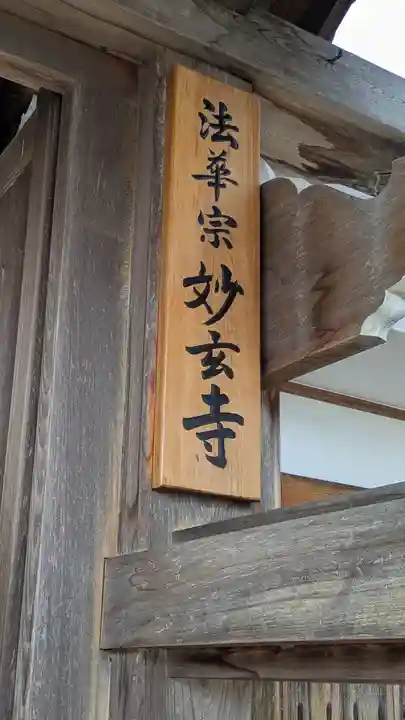 法華宗妙玄寺